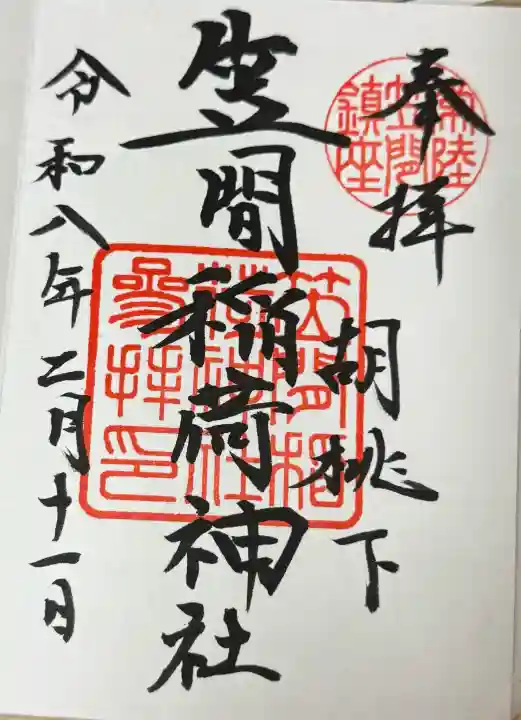 奉拝
常陸
笠間
鎮座
胡桃下
笠間稲荷神社
笠間稲
荷神社
参拝印
令和八年二月十一日